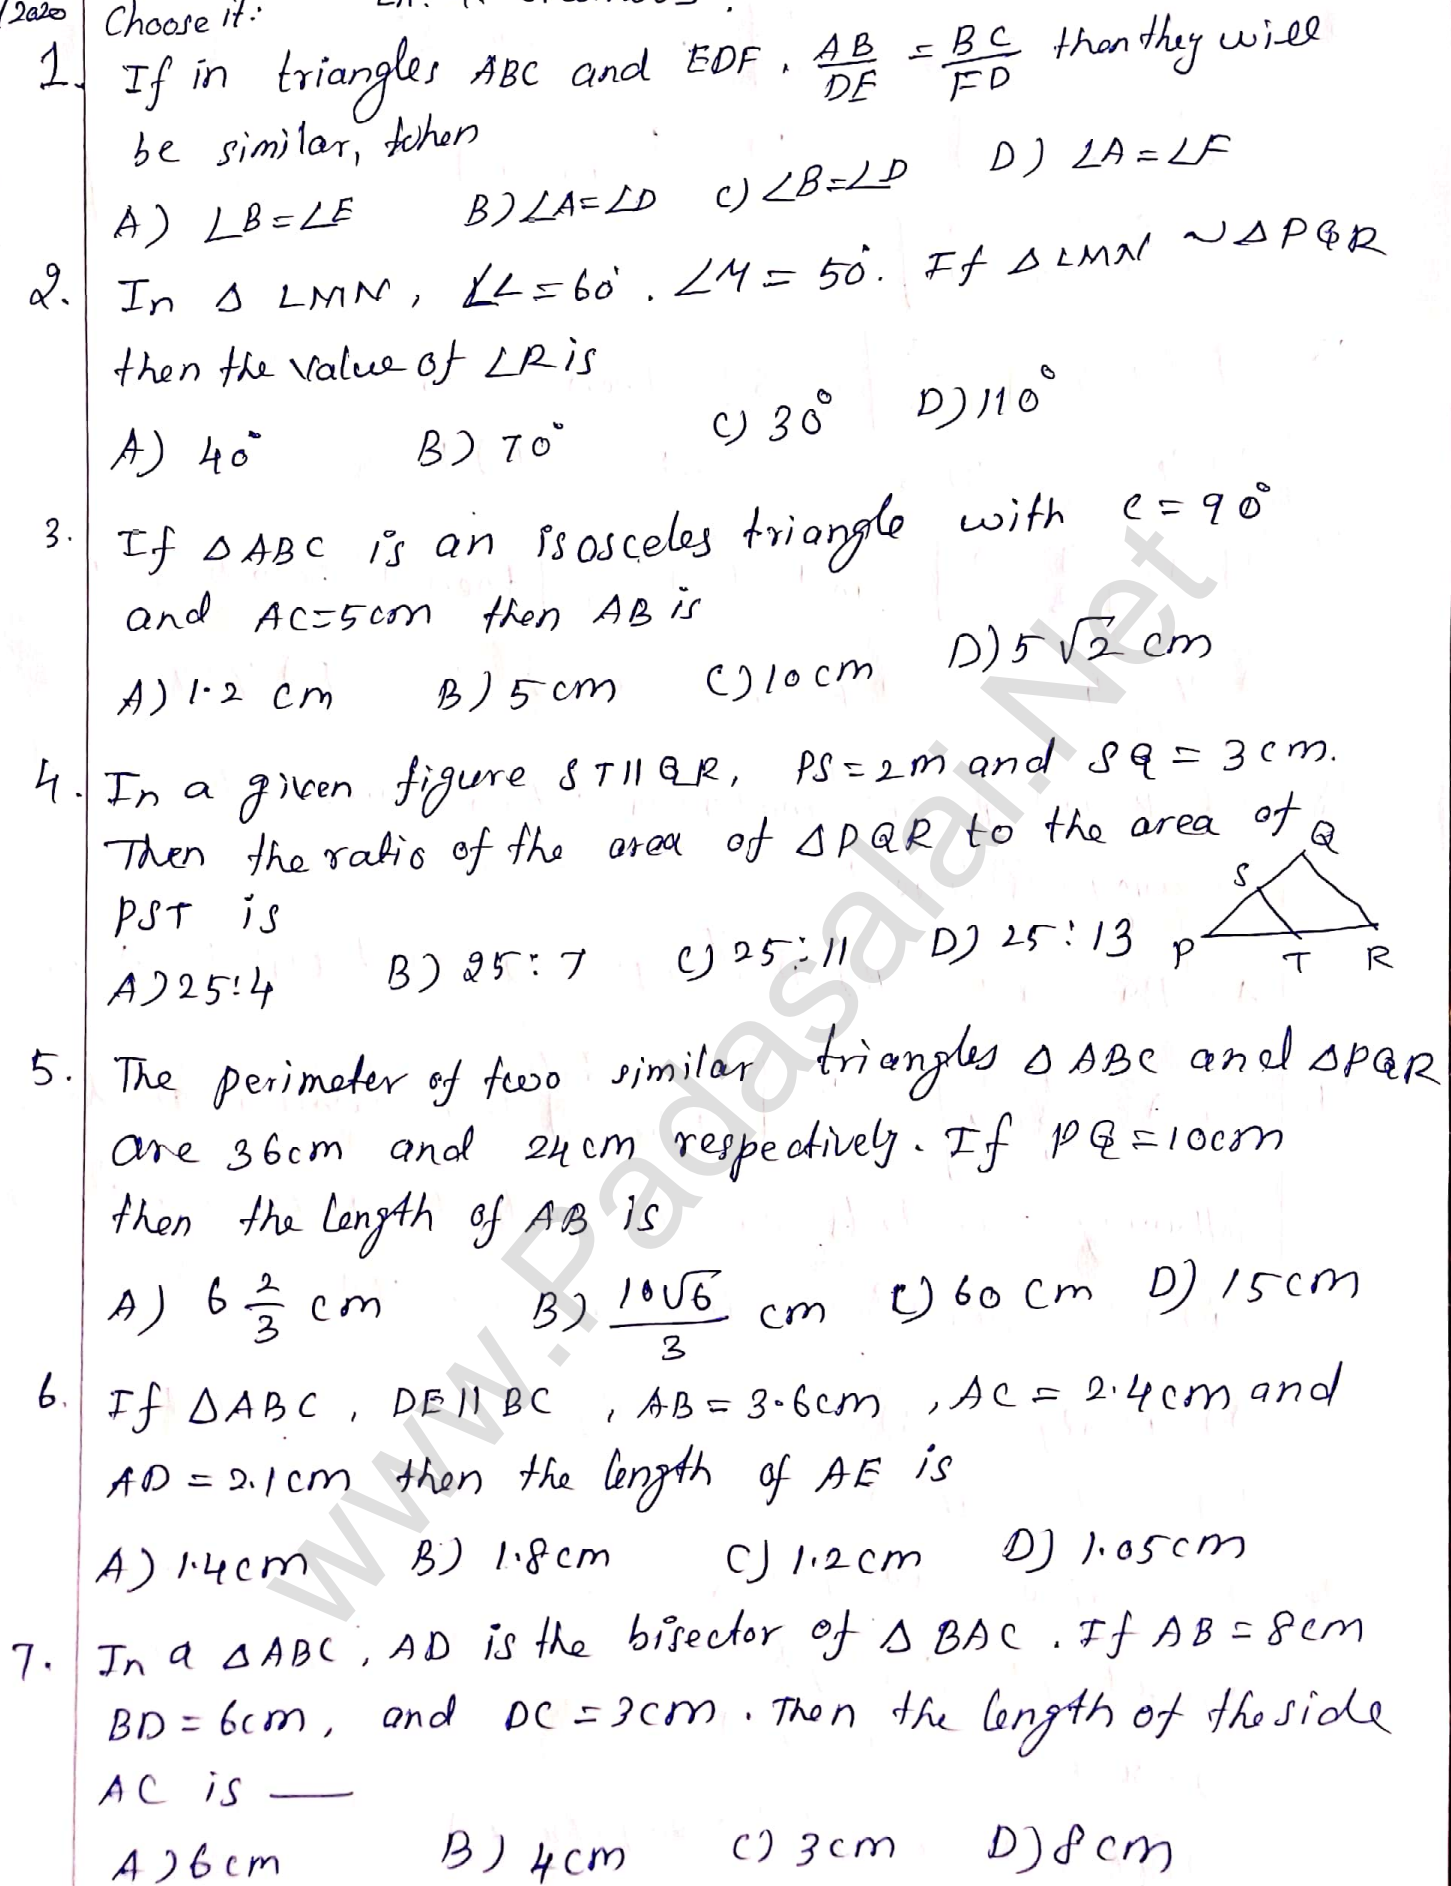 2020 Choose it:
1. If in triangles ABC and EDF, AB/DE = BC/FD then they will
be similar, when
A) ∠B=∠E B) ∠A=∠D C) ∠B=∠D D) ∠A=∠F
2. In Δ LMN, ∠L=60°. ∠M = 50°. If Δ LMN ~ ΔPQR
then the value of ∠R is
A) 40° B) 70° C) 30° D) 110°
3. If ΔABC is an isosceles triangle with C=90°
and AC=5cm then AB is
A) 1.2 cm B) 5cm C) 10cm D) 5√2 cm
4. In a given figure ST||QR, PS=2m and SQ = 3cm.
Then the ratio of the area of ΔPQR to the area of
PST is
A) 25:4 B) 25:7 C) 25:11 D) 25:13
Q
S
P T R
5. The perimeter of two similar triangles ΔABC and ΔPQR
are 36cm and 24cm respectively. If PQ=10cm
then the length of AB is
A) 6 2/3 cm B) 10√6/3 cm C) 60 cm D) 15cm
6. If ΔABC, DE||BC, AB=3.6cm, AC = 2.4cm and
AD = 2.1cm then the length of AE is
A) 1.4cm B) 1.8cm C) 1.2cm D) 1.05cm
7. In a ΔABC, AD is the bisector of ΔBAC. If AB=8cm
BD=6cm, and DC=3cm. Then the length of the side
AC is —
A) 6cm B) 4cm C) 3cm D) 8cm
www.Padasalai.Net